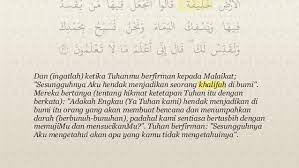 الْأَرْضِ خَلِيفَةً قَالُوا أَتَجْعَلُ فِيهَا مَن يُفْسِدُ
فِيهَا وَيَسْفِكُ الدِّمَاءَ وَنَحْنُ نُسَبِّحُ بِحَمْدِكَ
وَنُقَدِّسُ لَكَ قَالَ إِنِّي أَعْلَمُ مَا لَا تَعْلَمُونَ
Dan (ingatlah) ketika Tuhanmu berfirman kepada Malaikat;
"Sesungguhnya Aku hendak menjadikan seorang khalifah di bumi".
Mereka bertanya (tentang hikmat ketetapan Tuhan itu dengan
berkata): "Adakah Engkau (Ya Tuhan kami) hendak menjadikan di
bumi itu orang yang akan membuat bencana dan menumpahkan
darah (berbunuh-bunuhan), padahal kami sentiasa bertasbih dengan
memujiMu dan mensucikanMu?". Tuhan berfirman: "Sesungguhnya
Aku mengetahui akan apa yang kamu tidak mengetahuinya".